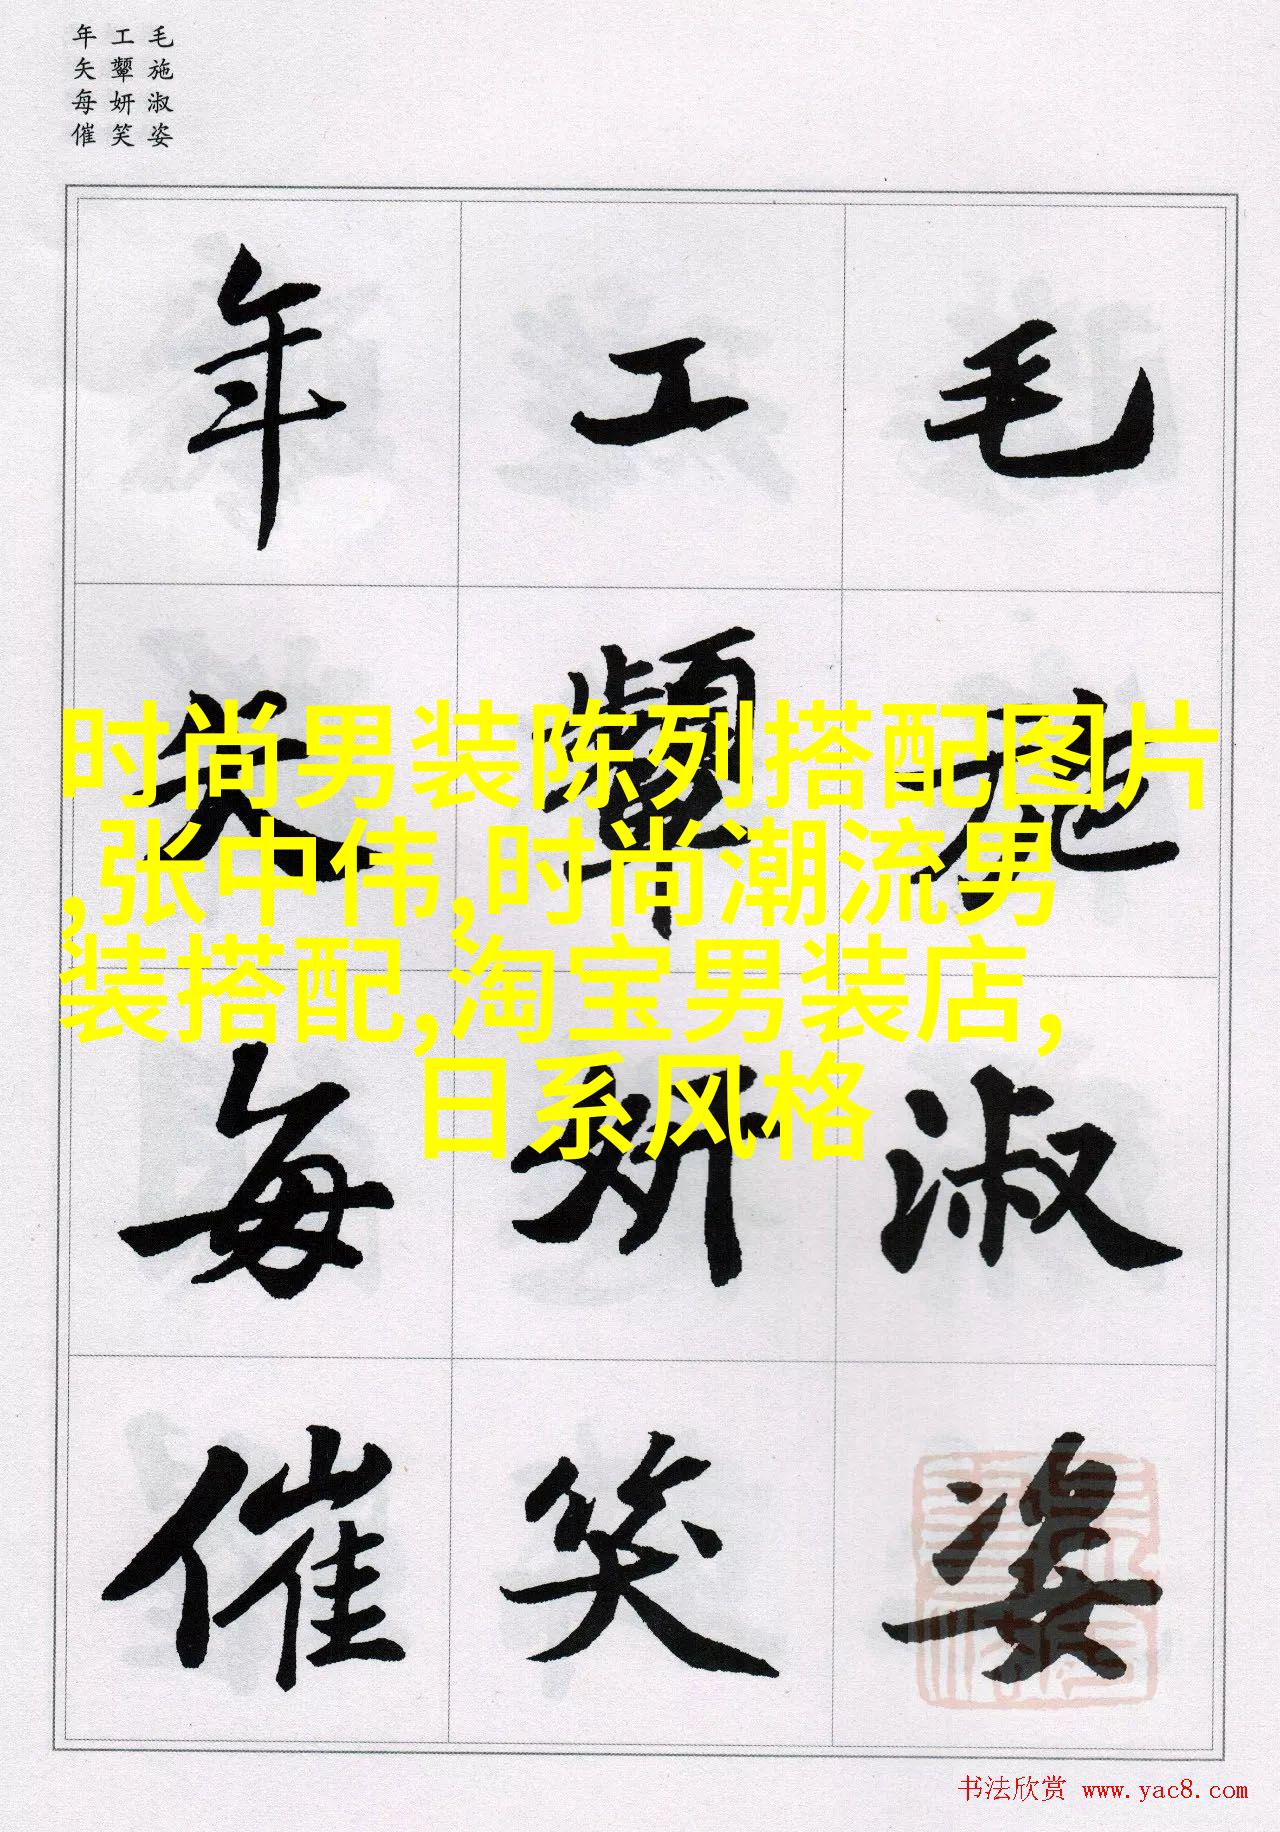 毛施淑姿
工颦妍笑
年矢每催
毛施淑姿
工颦妍笑
年矢每催
时尚男装陈列搭配图片
,张中伟,时尚潮流男
装搭配,淘宝男装店,
日系风格
书法欣赏 www.yac8.com